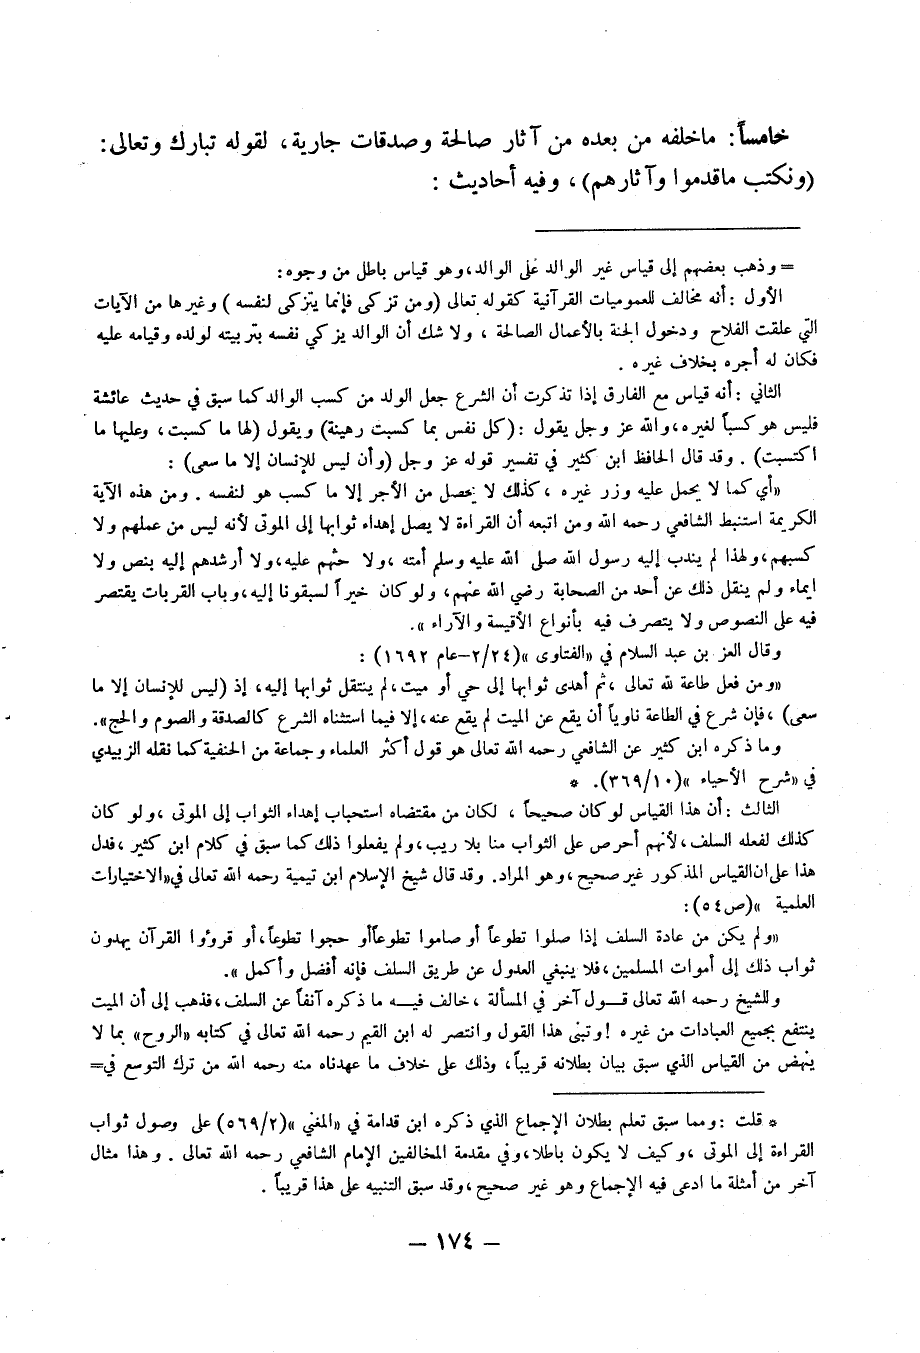 خامساً: ماخلفه من بعده من آثار صالحة وصدقات جارية، لقوله تبارك وتعالى:
(ونكتب ماقدموا وآثارهم)، وفيه أحاديث :
= وذهب بعضهم إلى قياس غير الوالد على الوالد، وهو قياس باطل من وجوه:
الأول : أنه مخالف للعموميات القرآنية كقوله تعالى (ومن تزكى فإنما يتزكى لنفسه ) وغيرها من الآيات
التي علقت الفلاح ودخول الجنة بالأعمال الصالحة ، ولا شك أن الوالد يزكي نفسه بتربيته لولده وقيامه عليه
فكان له أجره بخلاف غيره .
الثاني : أنه قياس مع الفارق إذا تذكرت أن الشرع جعل الولد من كسب الوالد كما سبق في حديث عائشة
فليس هو كسباً لغيره، والله عز وجل يقول : (كل نفس بما كسبت رهينة) ويقول (لها ما كسبت، وعليها ما
اكتسبت) . وقد قال الحافظ ابن كثير في تفسير قوله عز وجل (وأن ليس للإنسان إلا ما سعى) :
«أي كما لا يحمل عليه وزر غيره ، كذلك لا يحصل من الأجر إلا ما كسب هو لنفسه . ومن هذه الآية
الكريمة استنبط الشافعي رحمه الله ومن اتبعه أن القراءة لا يصل إهداء ثوابها إلى الموتى لأنه ليس من عملهم ولا
كسبهم، ولهذا لم يندب إليه رسول الله صلى الله عليه وسلم أمته ، ولا حثهم عليه، ولا أرشدهم إليه بنص ولا
ايماء ولم ينقل ذلك عن أحد من الصحابة رضي الله عنهم، ولو كان خيراً لسبقونا إليه، وباب القربات يقتصر
فيه على النصوص ولا يتصرف فيه بأنواع الأقيسة والآراء ».
وقال العز بن عبد السلام في «الفتاوى »(٢/٢٤-عام ١٦٩٢) :
«ومن فعل طاعة لله تعالى ، ثم أهدى ثوابها إلى حي أو ميت، لم ينتقل ثوابها إليه، إذ (ليس للإنسان إلا ما
سعى) ، فإن شرع في الطاعة ناوياً أن يقع عن الميت لم يقع عنه، إلا فيما استثناه الشرع كالصدقة والصوم والحج».
وما ذكره ابن كثير عن الشافعي رحمه الله تعالى هو قول أكثر العلماء وجماعة من الحنفية كما نقله الزبيدي
في «شرح الأحياء »(٣٦٩/١٠). *
الثالث : أن هذا القياس لو كان صحيحاً ، لكان من مقتضاه استحباب إهداء الثواب إلى الموتى ، ولو كان
كذلك لفعله السلف، لأنهم أحرص على الثواب منا بلا ريب، ولم يفعلوا ذلك كما سبق في كلام ابن كثير ، فدل
هذا على ان القياس المذكور غير صحيح ، وهو المراد. وقد قال شيخ الإسلام ابن تيمية رحمه الله تعالى في«الاختيارات
العلمية »(ص٥٤):
«ولم يكن من عادة السلف إذا صلوا تطوعاً أو صاموا تطوعاً أو حجوا تطوعاً، أو قروؤا القرآن يهدون
ثواب ذلك إلى أموات المسلمين، فلا ينبغي العدول عن طريق السلف فإنه أفضل وأكمل ».
وللشيخ رحمه الله تعالى قول آخر في المسألة ، خالف فيه ما ذكره آنفاً عن السلف، فذهب إلى أن الميت
ينتفع بجميع العبادات من غيره ! وتبنى هذا القول وانتصر له ابن القيم رحمه الله تعالى في كتابه «الروح» بما لا
ينهض من القياس الذي سبق بيان بطلانه قريباً، وذلك على خلاف ما عهدناه منه رحمه الله من ترك التوسع في=
* قلت : ومما سبق تعلم بطلان الإجماع الذي ذكره ابن قدامة في «المغني »(٥٦٩/٢) على وصول ثواب
القراءة إلى الموتى ، وكيف لا يكون باطلا، وفي مقدمة المخالفين الإمام الشافعي رحمه الله تعالى . وهذا مثال
آخر من أمثلة ما ادعى فيه الإجماع وهو غير صحيح ، وقد سبق التنبيه على هذا قريباً .
– ١٧٤ –